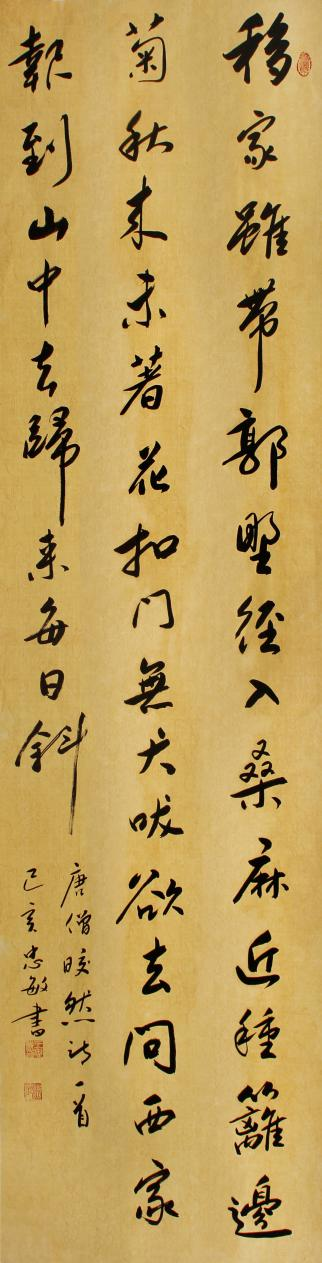 移家雖帶郭野徑入桑麻近種籬邊
菊秋來未著花扣門無犬吠欲去問西家
報到山中去歸来每日斜
唐僧皎然诗一首
己亥忠敏書